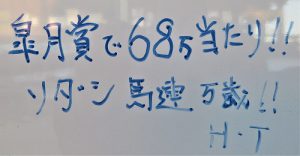 皐月賞で68万当たり!!
リターン 馬連 万歳!!
H・T